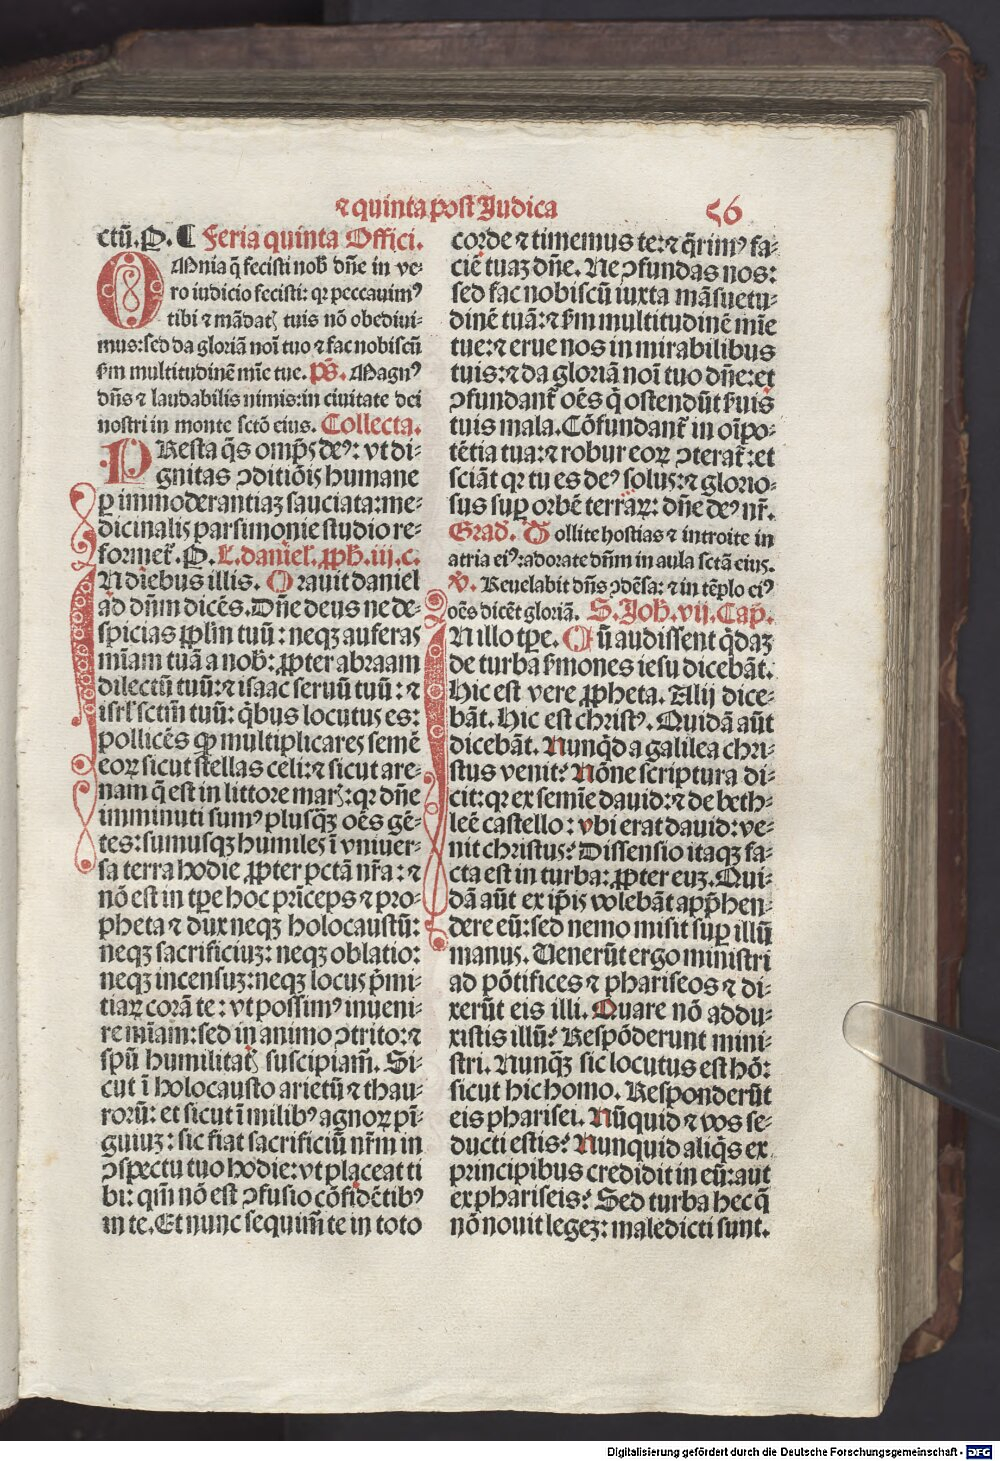 ⁊ quinta post Judica 56
ctū. P. ¶ Feria quinta Offici.
OMnia q̄ fecisti nob̄ dn̄e in ve⸗
ro iudicio fecisti: qꝛ peccauimꝰ
tibi ⁊ mādatꝭ tuis nō obediui⸗
mus: sed da gloriā noī tuo ⁊ fac nobiscū
ẜm multitudinē mīe tue. p̄s. Magnꝰ
dn̄s ⁊ laudabilis nimis: in ciuitate dei
nostri in monte sctō eius. Collecta.
PResta q̄s omp̄s deꝰ: vt di⸗
gnitas ꝯditiōis humane
ꝑ immoderantiaꝫ sauciata: me⸗
dicinalis parsimonie studio re⸗
formet̄. P. L. daniel. ꝓph̄. iij. c.
IN diebus illis. Orauit daniel
ad dn̄m dicēs. Dn̄e deus ne de⸗
spicias ꝓplm̄ tuū: neqꝫ auferas
mīam tuā a nob̄: ꝓpter abraam
dilectū tuū: ⁊ isaac seruū tuū: ⁊
isrl̄ sctm̄ tuū: q̄bus locutus es:
pollicēs ꝙ multiplicares semē
eoꝝ sicut stellas celi: ⁊ sicut are⸗
nam q̄ est in littore marꝭ: qꝛ dn̄e
imminuti sumꝰ plusqꝫ̄ oēs gē⸗
tes: sumusqꝫ humiles ī vniuer⸗
sa terra hodie ꝓpter pctā nr̄a: ⁊
nō est in tꝑe hoc prīceps ⁊ pro⸗
pheta ⁊ dux neqꝫ holocaustū:
neqꝫ sacrificiuꝫ: neqꝫ oblatio:
neqꝫ incensuꝫ: neqꝫ locus p̄mi⸗
tiaꝝ corā te: vt possimꝰ inueni⸗
re mīam: sed in animo ꝯtrito: ⁊
spū humilitatꝭ suscipiam̄. Si⸗
cut ī holocausto arietū ⁊ thau⸗
rorū: et sicut ī milibꝰ agnoꝝ pī⸗
guiuꝫ: sic fiat sacrificiū nr̄m in
ꝯspectu tuo hodie: vt placeat ti
bi: qm̄ nō est ꝯfusio cōfidētibꝰ
in te. Et nunc sequim̄ te in toto
corde ⁊ timemus te: ⁊ q̄rimꝰ fa⸗
ciē tuaꝫ dn̄e. Ne ꝯfundas nos:
sed fac nobiscū iuxta māsuetu⸗
dinē tuā: ⁊ ẜm multitudinē mīe
tue: ⁊ erue nos in mirabilibus
tuis: ⁊ da gloriā noī tuo dn̄e: et
ꝯfundant̄ oēs q̄ ostendūt ẜuis
tuis mala. Cōfundant̄ in oīpo⸗
tētia tua: ⁊ robur eoꝝ ꝯterat̄: et
sciāt qꝛ tu es deꝰ solus: ⁊ glorio⸗
sus suꝑ orbē terraꝝ: dn̄e deꝰ nr̄.
Grad. Tollite hostias ⁊ introite in
atria eiꝰ: adorate dn̄m in aula sctā eius.
V̄. Reuelabit dn̄s ꝯdēsa: ⁊ in tēplo eiꝰ
oēs dicēt gloriā. S. Joh̄. vij. Cap̄.
IN illo tꝑe. Cū audissent q̄daꝫ
de turba ẜmones iesu dicebāt.
Hic est vere ꝓpheta. Alij dice⸗
bāt. Hic est christꝰ. Quidā aūt
dicebāt. Nunq̄d a galilea chri⸗
stus venit? Nōne scriptura di⸗
cit: qꝛ ex semīe dauid: ⁊ de beth⸗
leē castello: vbi erat dauid: ve⸗
nit christus? Dissensio itaqꝫ fa⸗
cta est in turba: ꝓpter euꝫ. Qui⸗
dā aūt ex ip̄is volebāt app̄hen⸗
dere eū: sed nemo misit suꝑ illū
manus. Uenerūt ergo ministri
ad pōtifices ⁊ phariseos ⁊ di⸗
xerūt eis illi. Quare nō addu⸗
xistis illū? Respōderunt mini⸗
stri. Nunqꝫ̄ sic locutus est hō:
sicut hic homo. Responderūt
eis pharisei. Nūquid ⁊ vos se⸗
ducti estis? Nunquid aliq̄s ex
principibus credidit in eū: aut
ex phariseis? Sed turba hec q̄
nō nouit legeꝫ: maledicti sunt.
Digitalisierung gefördert durch die Deutsche Forschungsgemeinschaft - DFG